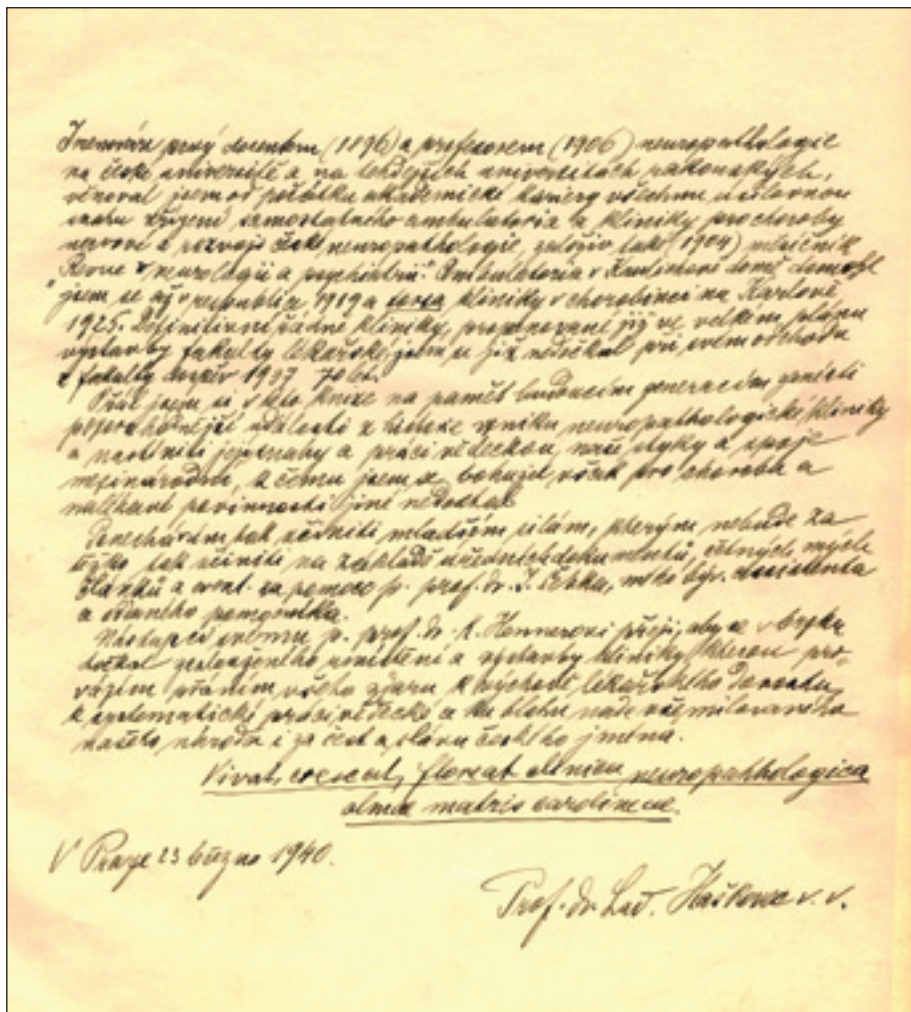 Jmenován prvý docentem (1896) a profesorem (1906) neuropathologie
na české universitě a na tehdejších universitách rakouských,
věnoval jsem od počátku akademické kariery všechnu
snahu zřízení samostatného ambulatoria a kliniky pro choroby
nervové a rozvoji české neuropathologie, založiv také (1904) měsíčník
"Revue v neurologii a psychiatrii". Ambulatoria v Kaulichově domě domohl
jsem se až v republice 1919 a torsa kliniky v chorobinci na Karlově
1925. Definitivní řádné kliniky, propanované již ve velkém plánu
výstavby fakulty lékařské, jsem se již nedočkal při svém odchodu
z fakulty 1937 70 let.
Přál jsem si v této knize na paměť budoucím generacím zanésti
události z historie vzniku neuropathologické kliniky
a nastíniti její snahy a práci vědeckou, naše styky a spoje
mezinárodní, k čemu jsem se bohužel však pro chorobu a
naléhavé povinnosti jiné nedostal.
Ponechávám tak učiniti mladším silám, kterým nebude za
těžko tak učiniti na základě úředních dokumentů, četných mých
článků a event. za pomoci p. prof. dr. mého býv. asistenta
a oddaného pomocníka.
Nástupci svému p. prof. dr. K. Hennerovi přeji, aby se v brzku
dočkal umístění a výstavby kliniky, kterou pro-
vázím přáním všeho zdaru k výchově lékařského dorostu,
k systematické práci vědecké a ke blahu nade vše milovaného
našeho národa i za čest a slávu českého jména.
Vivat, crescat, floreat clinica neuropathologica
almae matris carolinae.
V Praze 23 března 1940.
Prof. dr. Lad. Haškovec v. v.